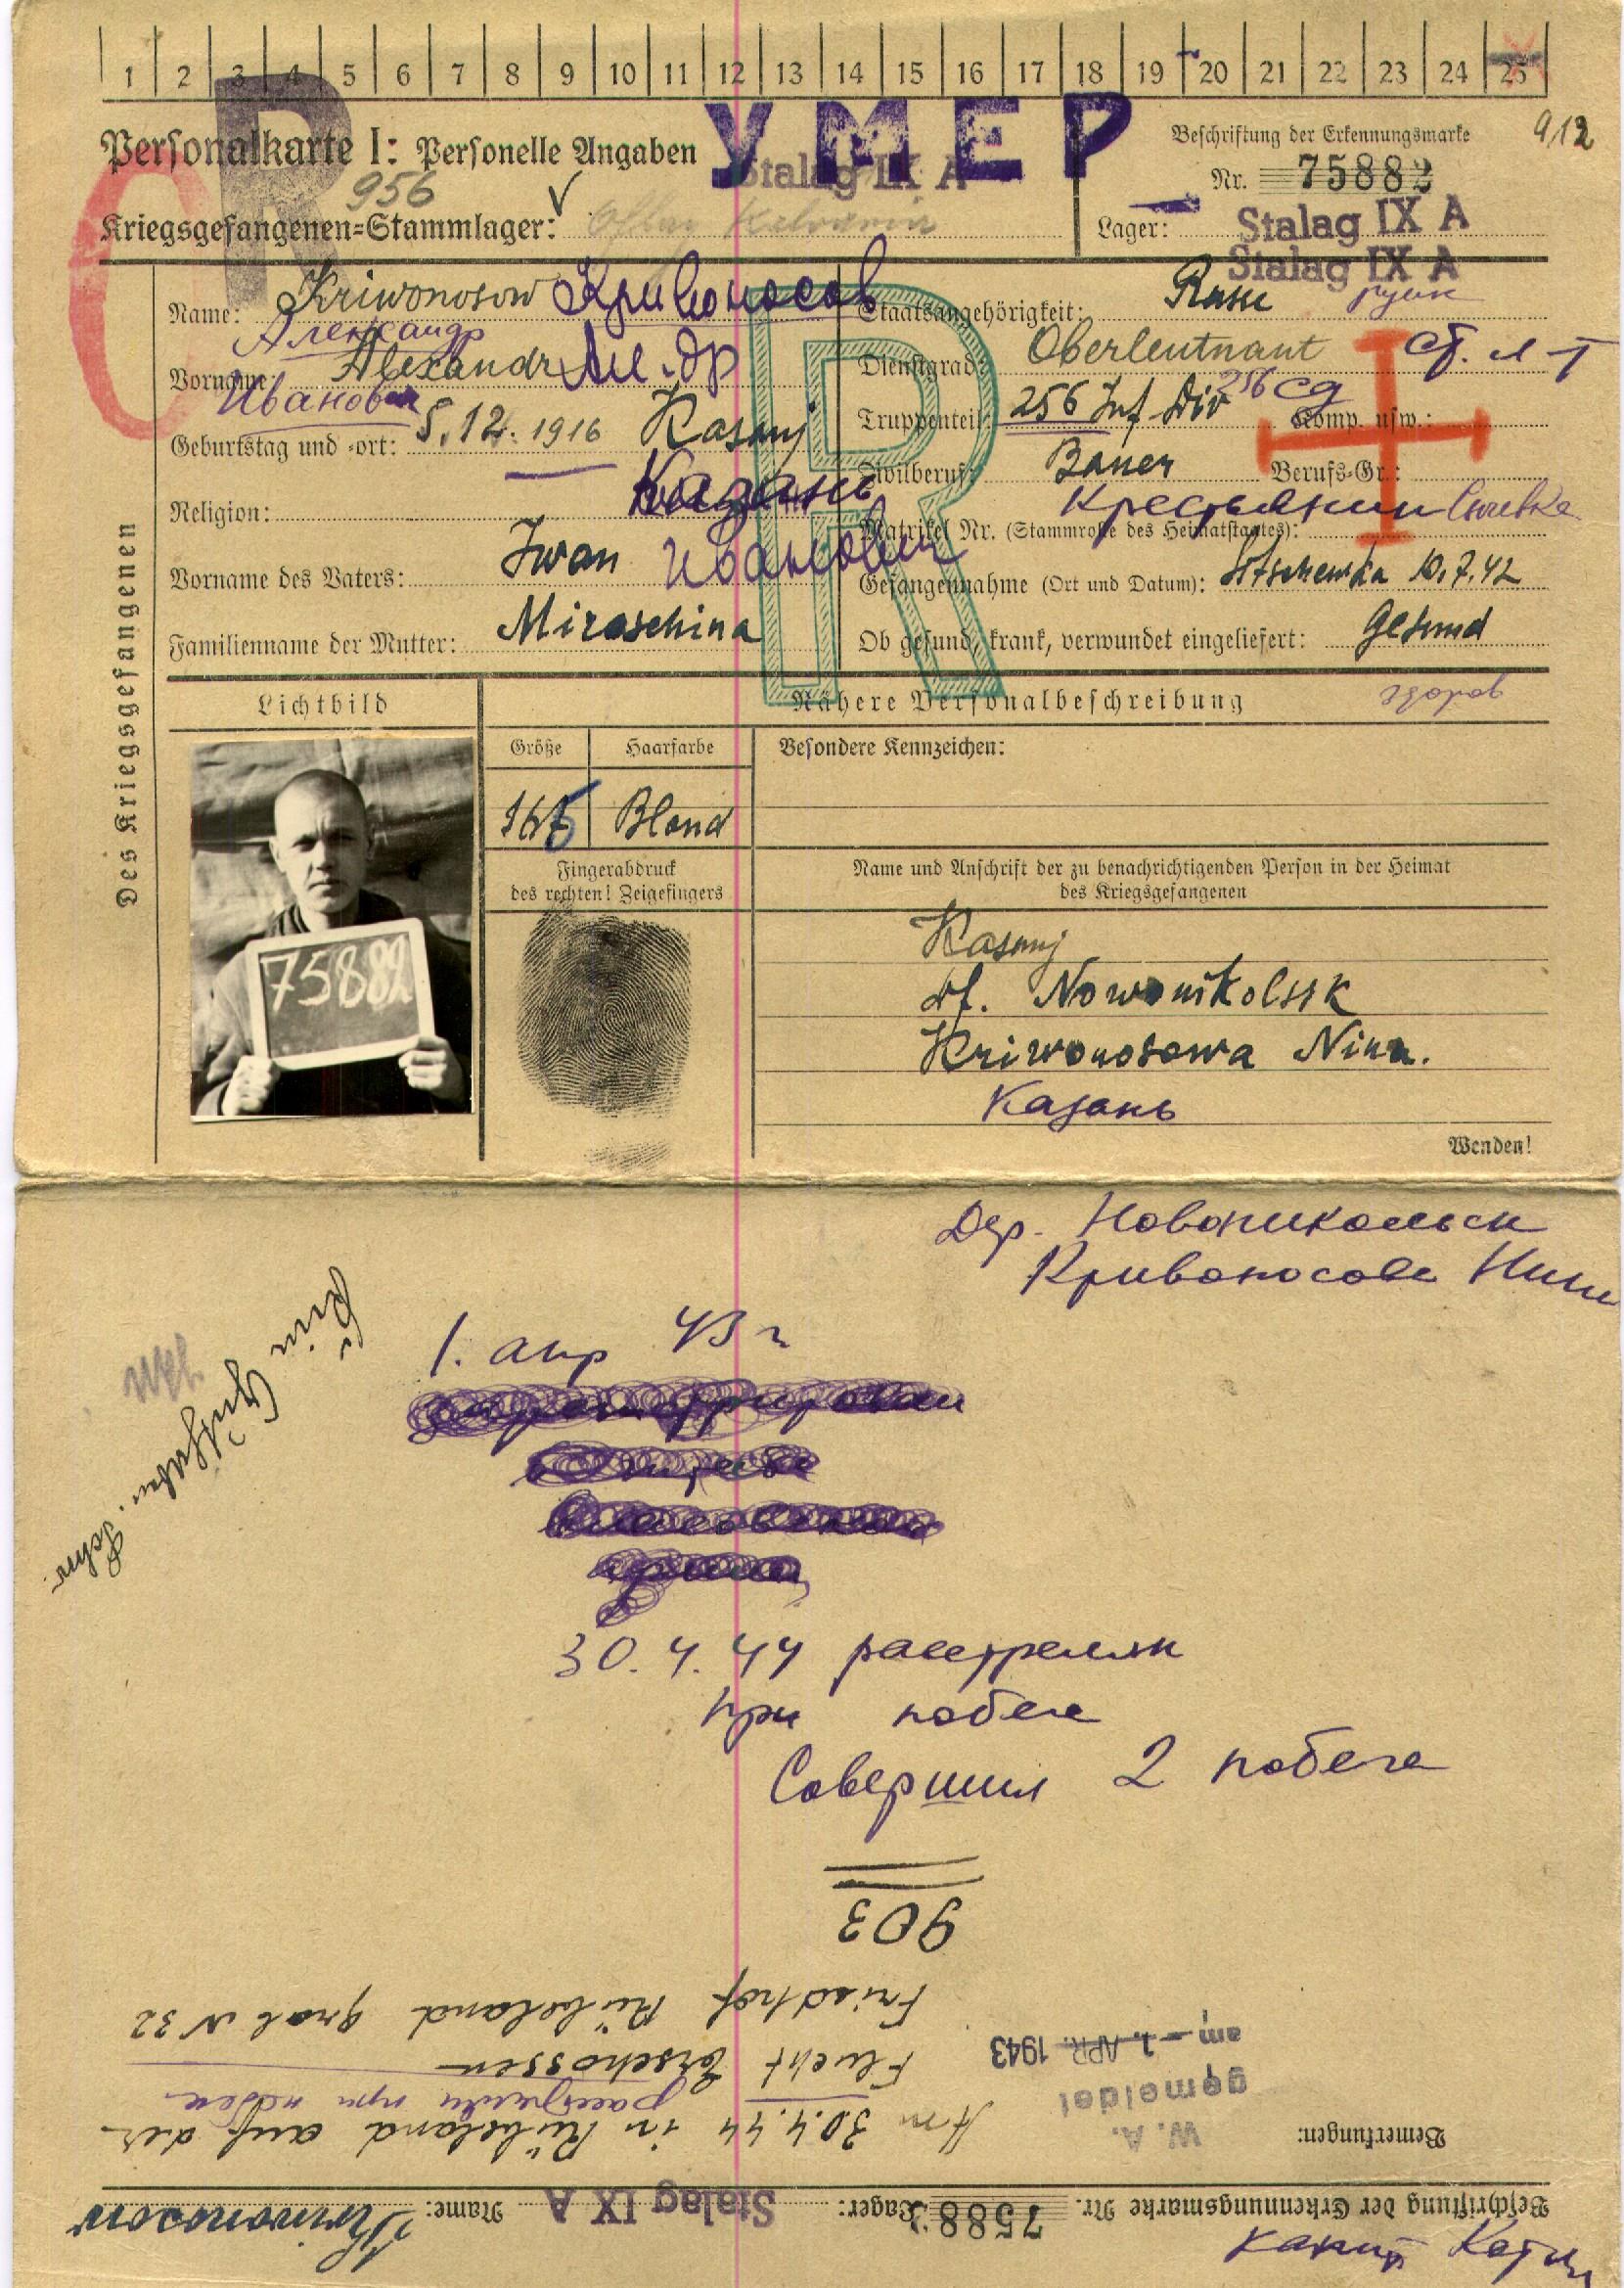 1 2 3 4 5 6 7 8 9 10 11 12 13 14 15 16 17 18 19 20 21 22 23 24 25
R
УМЕР
Personalkarte I: Personelle Angaben
Stalag IX A
Beschriftung der Erkennungsmarke
9/12
956
Nr. 75882
Kriegsgefangenen=Stammlager:
Lager: Stalag IX A
Stalag IX A
Des Kriegsgefangenen
Name: Kriwonosow Кривоносов
Александр
Vorname: Alexandr Ал-др
Иванович
Geburtstag und -ort: 5.12.1916 Kasanj
Казань
Religion:
Vorname des Vaters: Iwan Иванович
Familienname der Mutter: Miroschina
R
Staatsangehörigkeit: Russe русск
Dienstgrad: Oberleutnant ст. л-т
Truppenteil: 256 Inf Div 256 сд Komp. usw.:
Zivilberuf: Bauer Berufs-Gr.:
крестьянин
Matrikel Nr. (Stammrolle des Heimatstaates):
Gefangennahme (Ort und Datum): 10.7.42
Ob gesund, krank, verwundet eingeliefert: Gesund
здоров
Lichtbild
Nähere Personalbeschreibung
Größe
Haarfarbe
Besondere Kennzeichen:
Blond
75882
Fingerabdruck
des rechten! Zeigefingers
Name und Anschrift der zu benachrichtigenden Person in der Heimat
des Kriegsgefangenen
Kasanj
df. Nowonikolssk
Kriwonosowa Nina.
Казань
Wenden!
Дер. Новоникольск
Кривоносова Нина
1. апр 43 г
30.4.44 расстрелян
при побеге
Совершил 2 побега
903
Beschriftung der Erkennungsmarke Nr. 75882 Lager: Stalag IX A Name: Kriwonosow
Bemerkungen:
W. A.
gemeldet
am - 1. APR. 1943
Am 30.4.44 in Rübeland auf der
расстрелян при побеге
Flucht Erschossen
Friedhof Rübeland Grab N 32